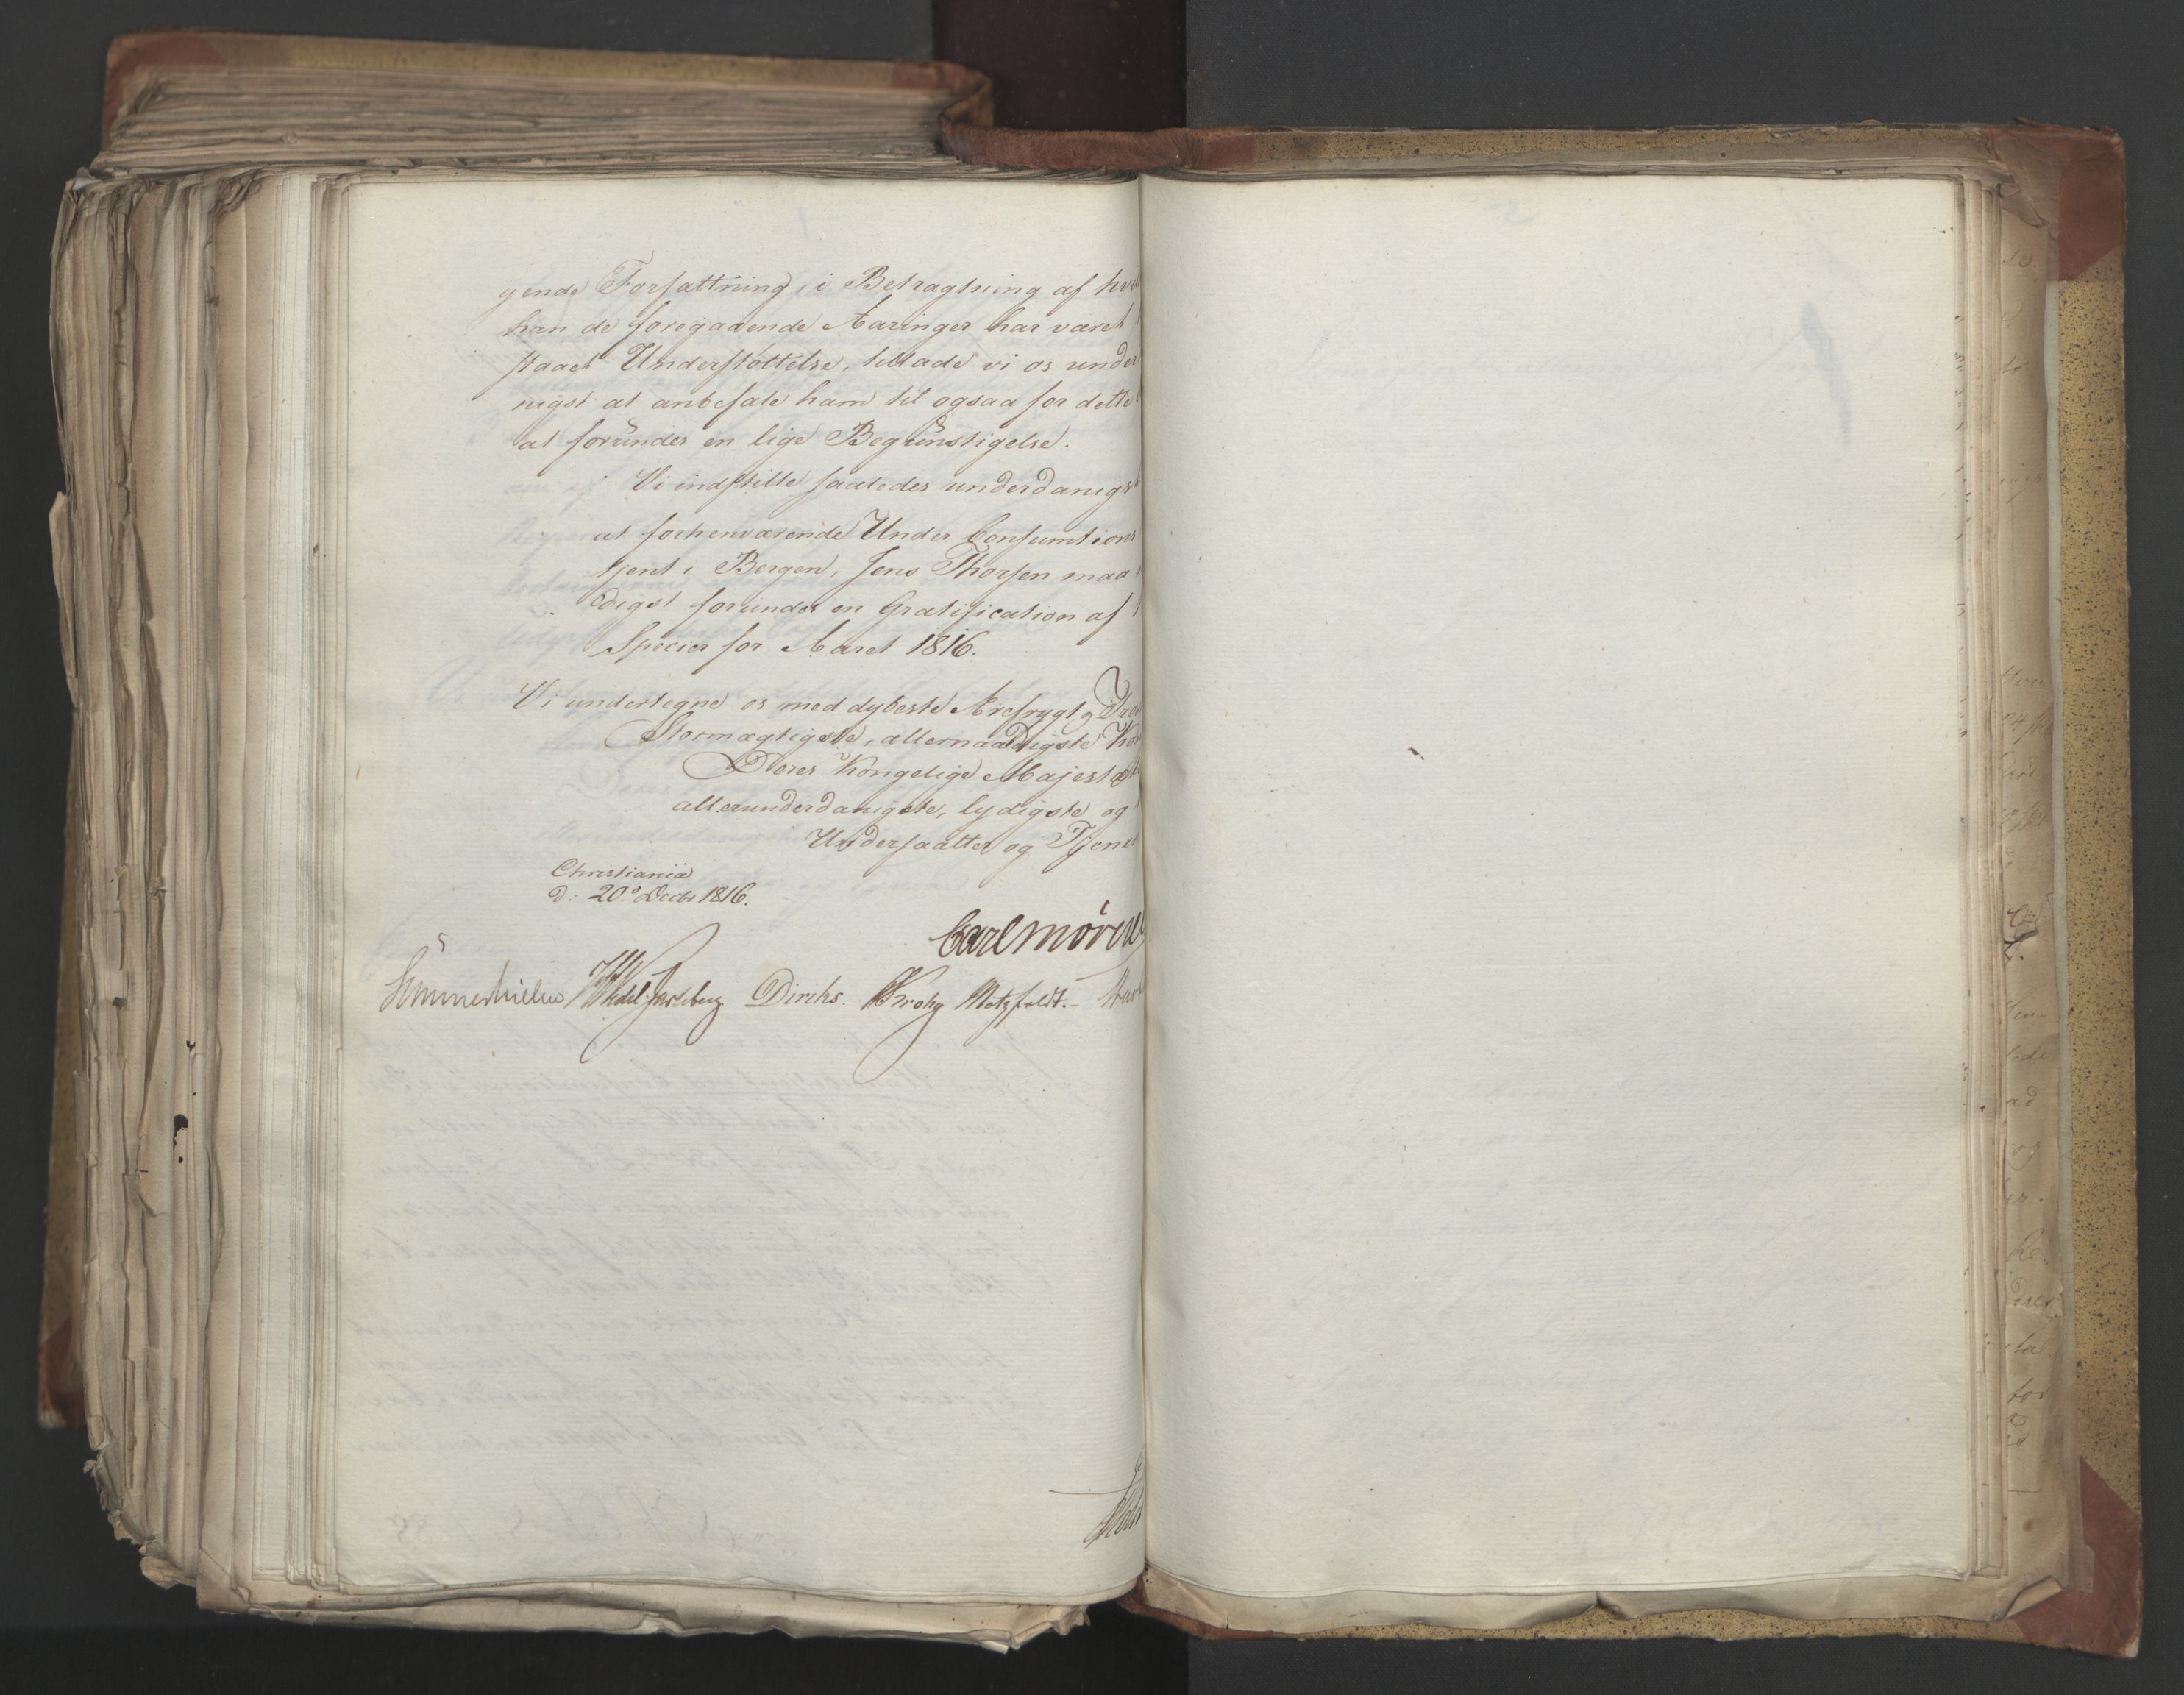 gende Forfattning, i Betragtning af hvad
han de foregaaende Aaringer har været
staaet Understøttelse, tillade vi os under
nigst at anbefale ham til ogsaa for dette
at forundes en lige Begunstigelse.
Vi indstille saaledes underdanigst
at forhenværende Under Consumtions
tjent i Bergen, Jens Thorsen maa
digst forundes en Gratification af
Species for Aaret 1816.
Vi undertegne os med dybeste Ærefrygt og
Stormægtigste, allernaadigste
Deres Kongelige Majestæts
allerunderdanigste, lydigste og
Undersaatter og Tjene
Christiania
d: 20de Decbr 1816.
Carl Mörner
Sommerhielm Wedel Jarlsberg Diriks. Krohg Motzfeldt.